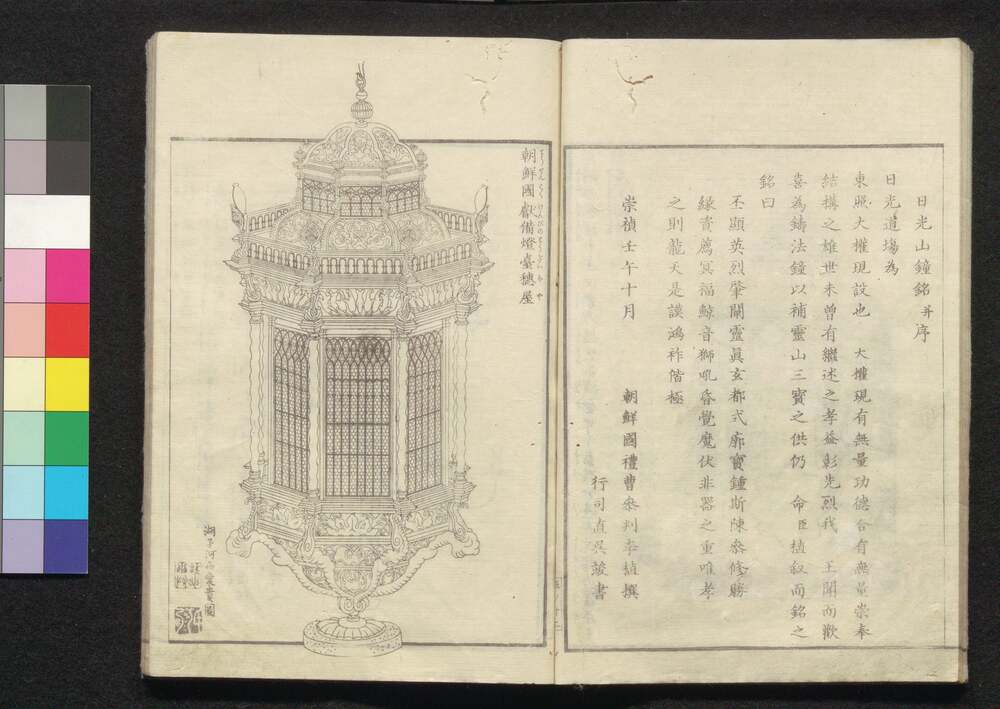 日光山鐘銘并序
日光道場為
東照大權現設也　大權現有無量功德合有無量崇奉
結構之雄世未曾有繼述之孝益彰先烈我　王聞而歡
喜為鑄法鐘以補靈山三寶之供仍　命臣植叙而銘之
銘曰
丕顯英烈肇闢靈眞玄都式廓寶鍾斯陳參修勝
緣資薦冥福鯨音獅吼昏覺魔伏非器之重唯孝
之則龍天是護鴻祚偕極
崇禎壬午十月　朝鮮國禮曹參判李植撰
行司直吳竣書
朝鮮國獻備燈臺穗屋